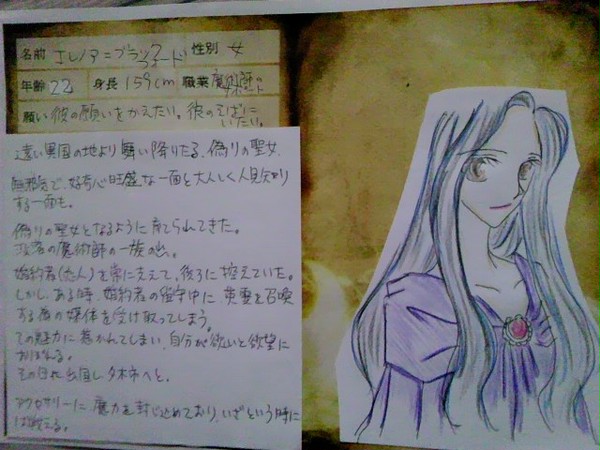 名前 エレノア=ブラックフォード 性別 女
年齢 22 身長 159cm 職業 魔術師のサポート
願い 彼の願いをかなえたい。彼のそばにいたい。
遠い異国の地より舞い降りたる、偽りの聖女。
無邪気で、好奇心旺盛な一面と大人しく人見知り
する一面も。
偽りの聖女となるように育てられてきた。
没落の魔術師の一族の出。
婚約者(恋人)を常に支えて、後ろに控えていた。
しかし、ある時、婚約者の留守中に英霊を召喚
する為の媒体を受け取ってしまう。
その魅力に惹かれてしまい、自分が欲しいと欲望に
おぼれる。
その日に出国し冬木市へと。
アクセサリーに魔力を封じ込めており、いざという時に
は戦える。